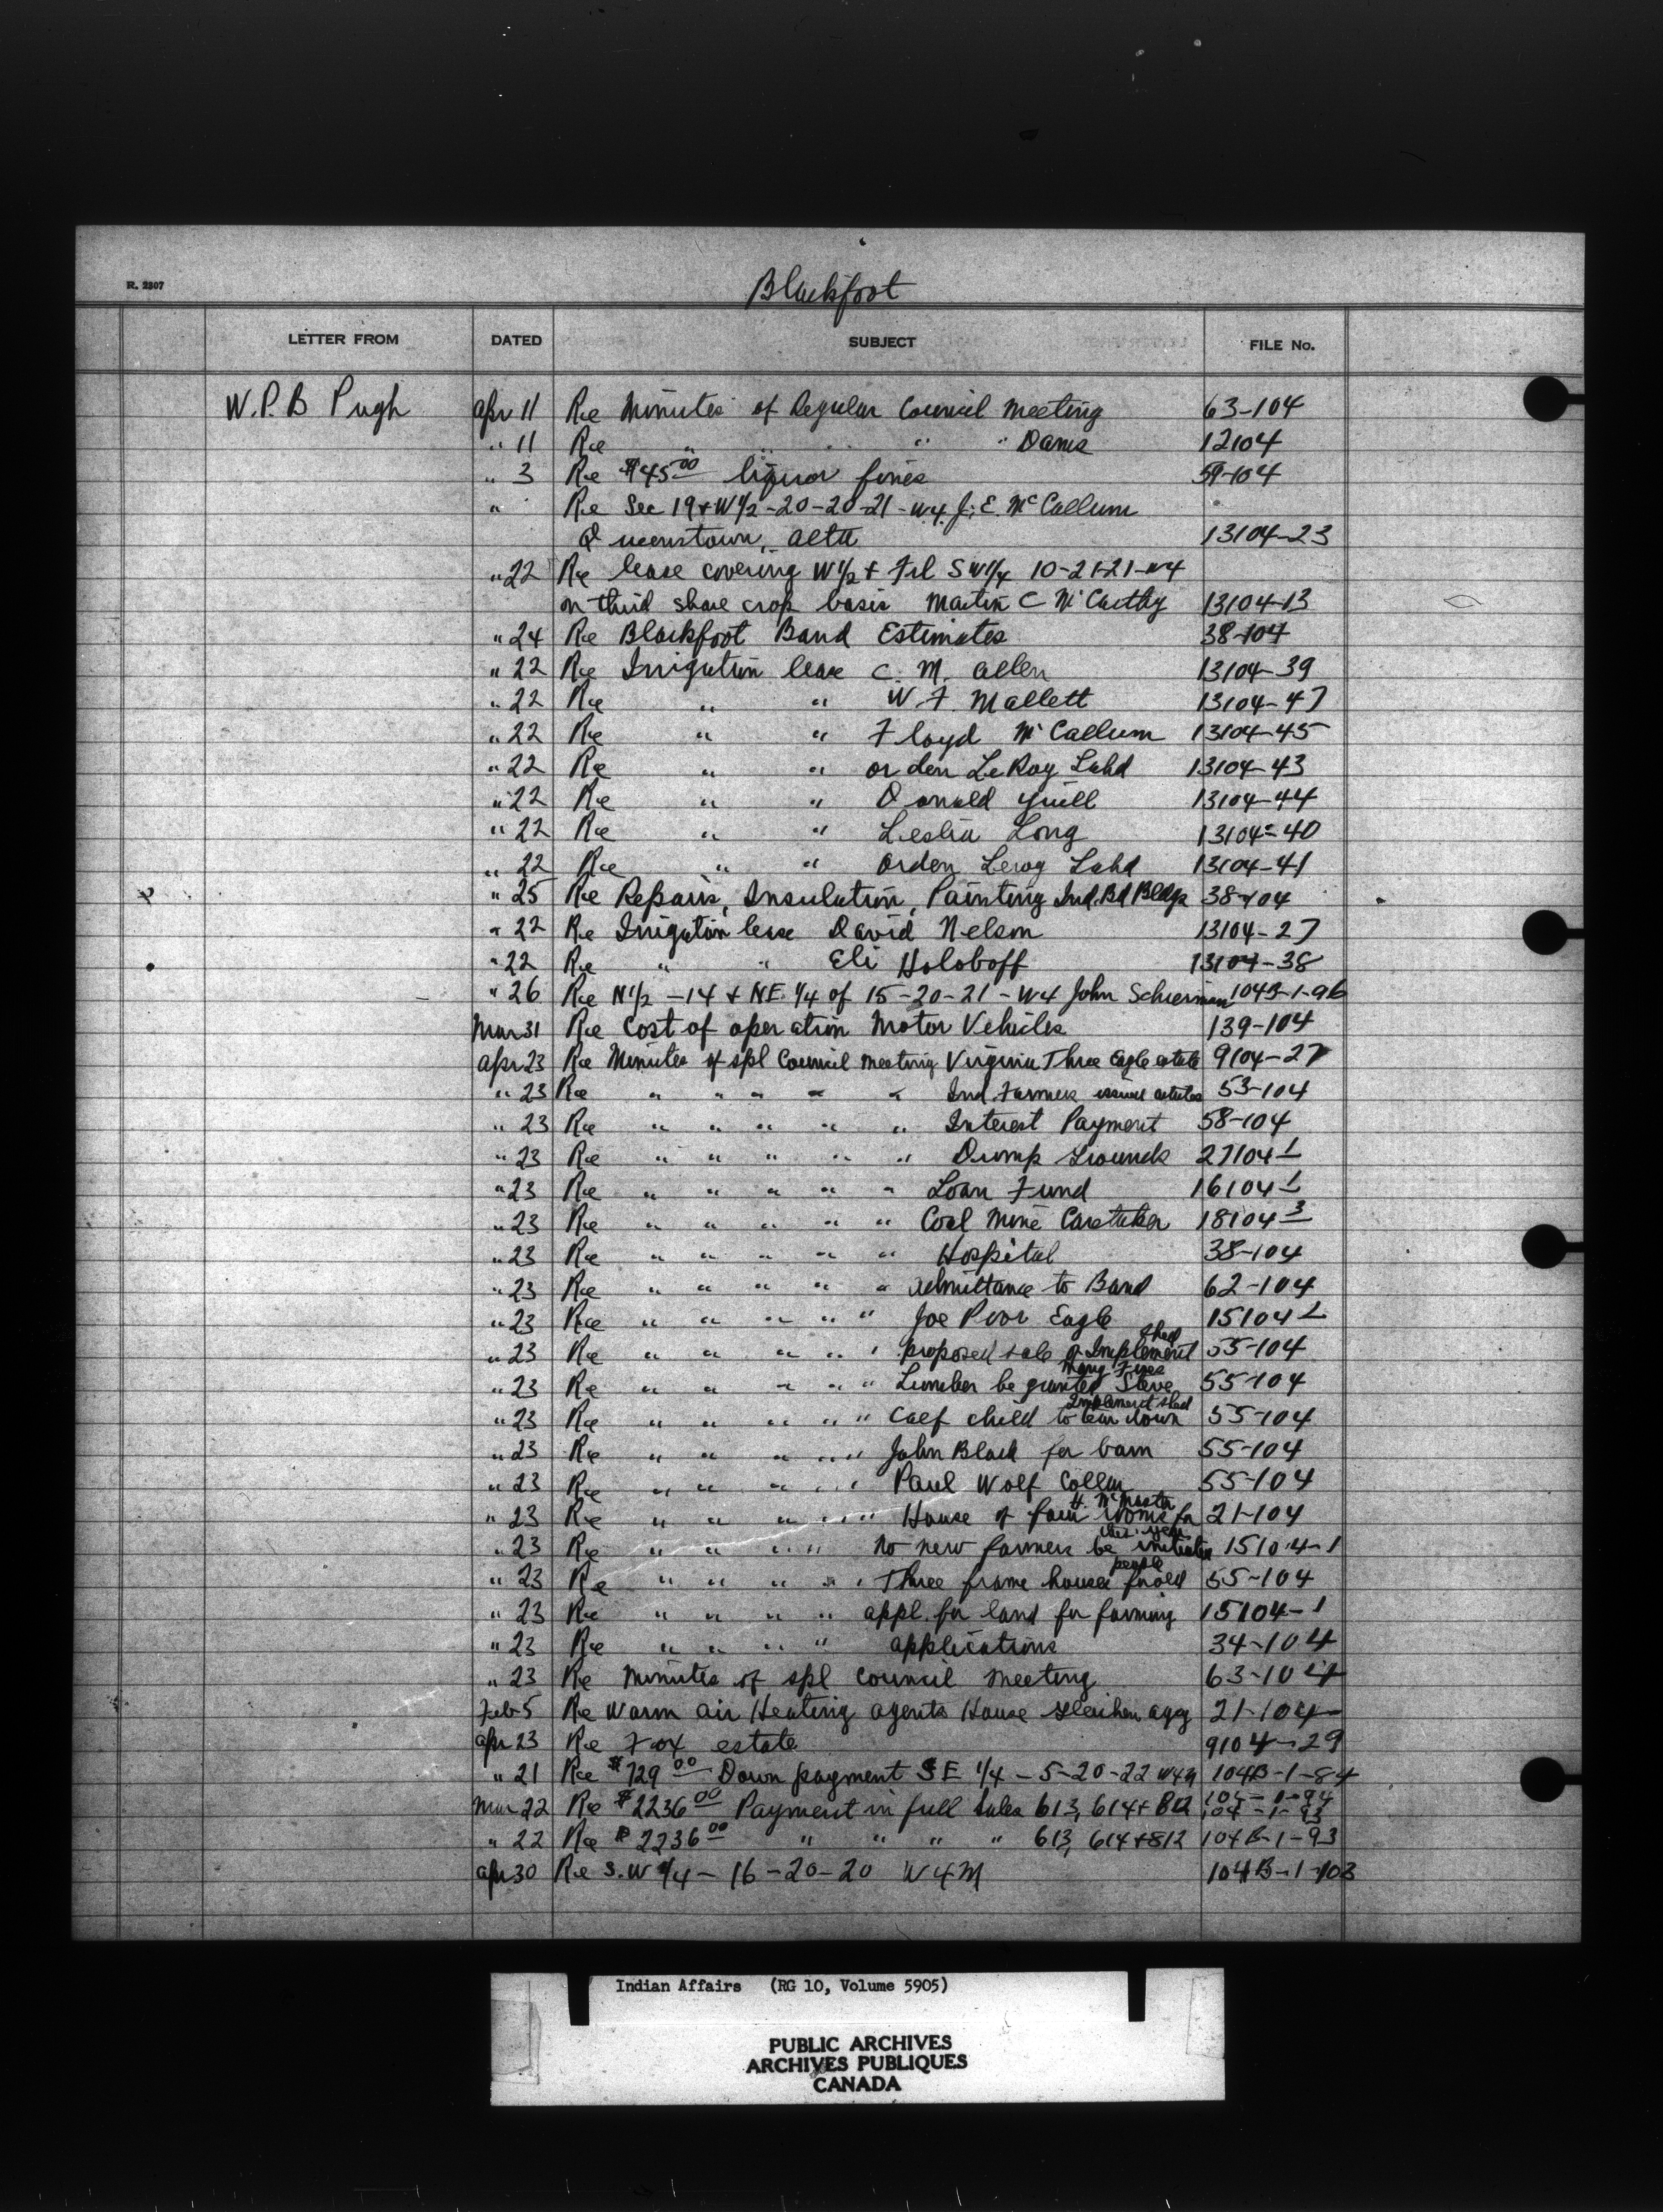 R. 2307
Blackfoot
LETTER FROM DATED SUBJECT FILE No.
W.P.B Pugh Apr 11 Re Minutes of Regular Council Meeting 63-104
" 11 Re " " " " " Dams 12104
" 3 Re $45 00 liquor fines 59-104
" Re Sec 19 + W 1/2 - 20-20-21-W4. J. E. McCallum
Queenstown, Alta 13104-23
" 22 Re lease covering W 1/2 + Frl SW 1/4 10-21-21-W4
on third share crop basis Martin C McCarthy 13104-13
" 24 Re Blackfoot Band Estimates 38-104
" 22 Re Irrigation lease C. M. Allen 13104-39
" 22 Re " " W F. Mallett 13104-47
" 22 Re " " Floyd McCallum 13104-45
" 22 Re " " Orden LeRoy Lahd 13104-43
" 22 Re " " Donald Yuill 13104-44
" 22 Re " " Leslie Long 13104-40
" 22 Re " " Orden Leroy Lahd 13104-41
" 25 Re Repairs, Insulation, Painting Ind. Bd Bldgs 38-104
" 22 Re Irrigation lease David Nelson 13104-27
" 22 Re " " Eli Holoboff 13104-38
" 26 Re N 1/2 - 14 + NE 1/4 of 15-20-21-W4 John Schierman 104B-1-96
Mar 31 Re Cost of operation Motor Vehicles 139-104
Apr 23 Re Minutes of spl Council meeting Virginia Three Eagle estate 9104-27
" 23 Re " " " " " Ind. Farmers 53-104
" 23 Re " " " " " Interest Payment 58-104
" 23 Re " " " " " Dump Grounds 27104-1
" 23 Re " " " " " Loan Fund 16104-1
" 23 Re " " " " " Coal Mine Caretaker 18104-3
" 23 Re " " " " " Hospital 38-104
" 23 Re " " " " " Admittance to Band 62-104
" 23 Re " " " " " Joe Poor Eagle 15104-1
" 23 Re " " " " " proposed sale of Implement shed 55-104
" 23 Re " " " " " Lumber be granted Steve Many Fires 55-104
" 23 Re " " " " " Calf child to tear down Implement shed 55-104
" 23 Re " " " " " John Black for barn 55-104
" 23 Re " " " " " Paul Wolf Collar 55-104
" 23 Re " " " " " House of four rooms for H. McMaster 21-104
" 23 Re " " " " " No new farmers be initiated this year 15104-1
" 23 Re " " " " " Three frame houses for old people 55-104
" 23 Re " " " " appl. for land for farming 15104-1
" 23 Re " " " " applications 34-104
" 23 Re Minutes of spl Council meeting 63-104
Feb 5 Re Warm air Heating Agents House Gleichen Agy 21-104
Apr 23 Re Fox estate 9104-29
" 21 Re $729 00 Down payment SE 1/4 - 5-20-22 W4M 104B-1-84
Mar 22 Re $2236 00 Payment in full Sales 613, 614 + 812 104-1-94 104-1-93
" 22 Re $2236 00 " " " " 613, 614 + 812 104B-1-93
Apr 30 Re S.W 1/4 - 16-20-20 W4M 104B-1-103
Indian Affairs (RG 10, Volume 5905)
PUBLIC ARCHIVES
ARCHIVES PUBLIQUES
CANADA